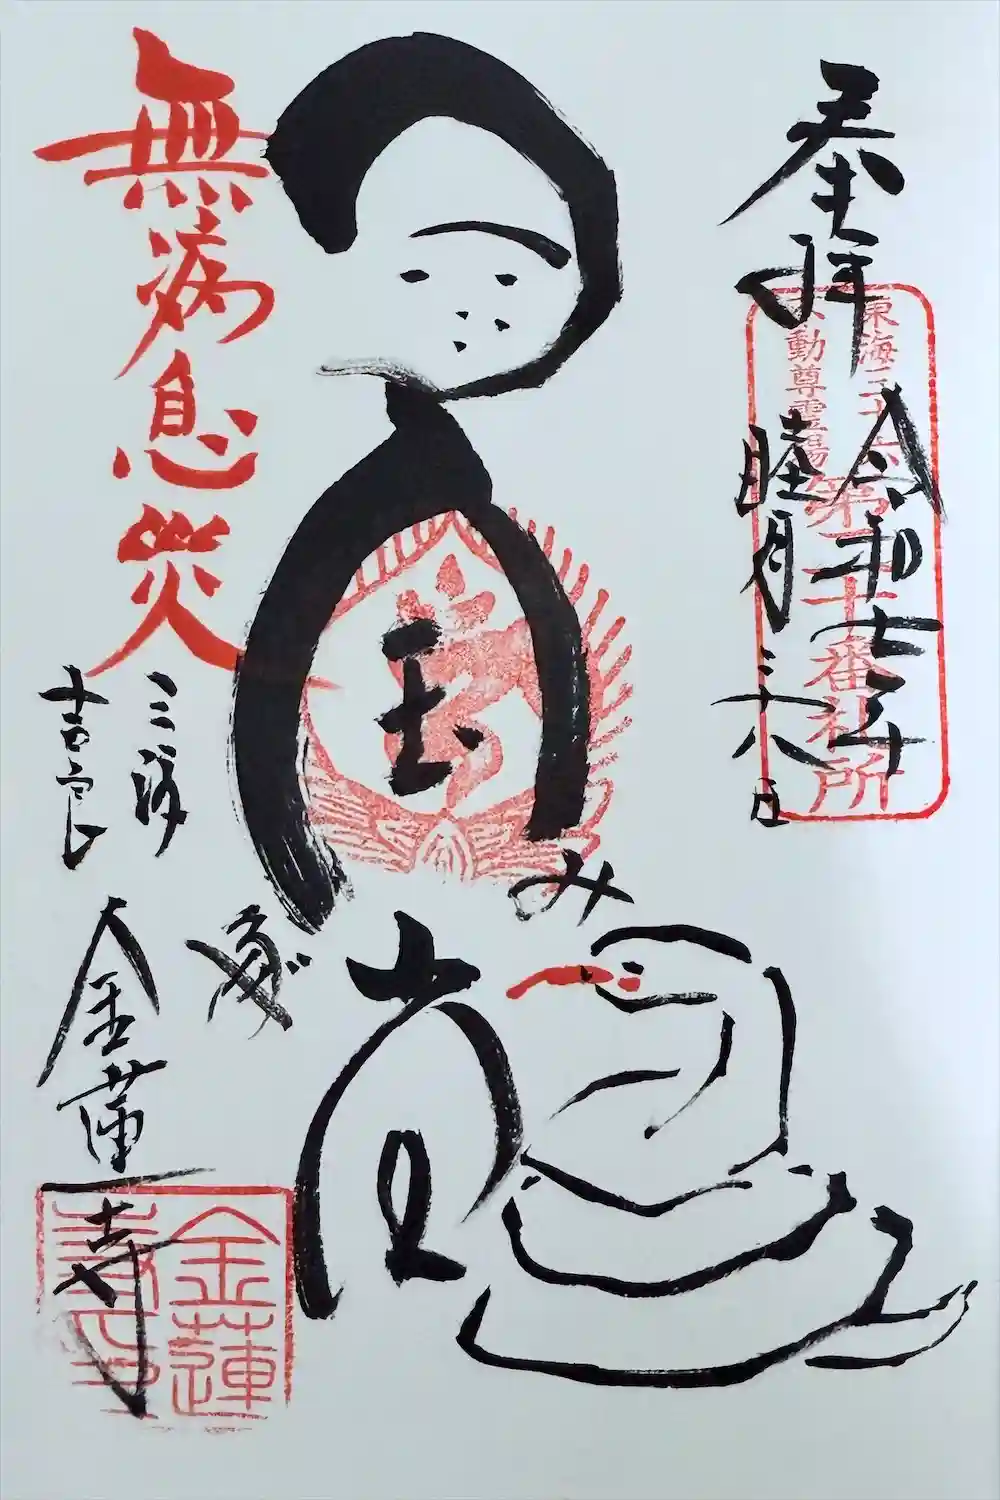 奉拝
令和七年
睦月二十八日
東海三十六
不動尊霊場
第二十番札所
み
無病息災
三河
吉良
金蓮寺
金蓮
寺印